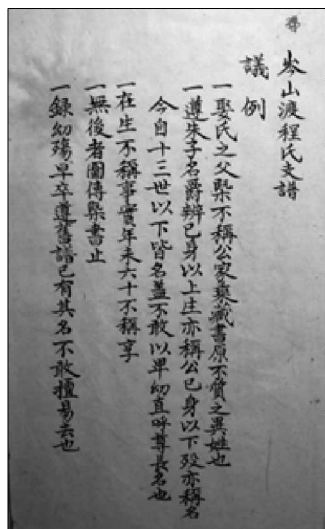 岑山渡程氏支譜
議例
一娶氏之父槩不稱公家乘藏書原不質之異姓也
一遵朱子名爵辨已身以上生亦稱公已身以下歿亦稱名
今自十三世以下皆名蓋不敢以卑幼直呼尊長名也
一在生不稱事實年未六十不稱享
一無後者圖傳槩書止
一錄幼殤早卒遵舊譜已有其名不敢擅易去也